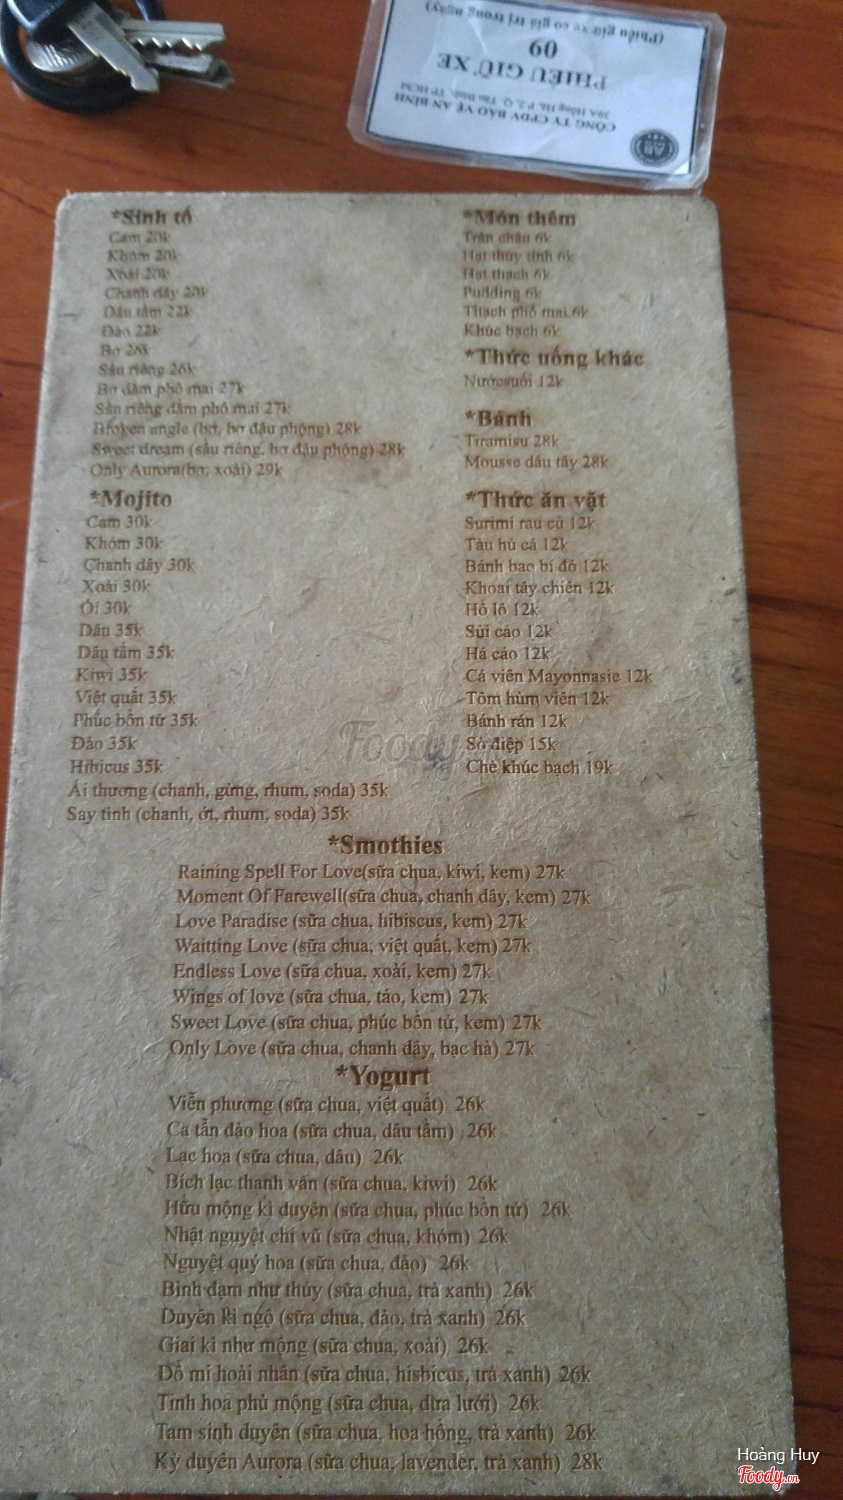 (Phiếu giữ xe có giá trị trong ngày)
09
PHIẾU GIỮ XE
39A Hồng Hà, P.2, Q. Tân Bình, TP HCM
CÔNG TY CPDV BẢO VỆ AN BÌNH
*Sinh tố
Cam 20k
Khóm 20k
Xoài 20k
Chanh dây 20k
Dâu tằm 22k
Đào 22k
Bơ 26k
Sầu riêng 26k
Bơ dầm phô mai 27k
Sầu riêng dầm phô mai 27k
Broken angle (bơ, bơ đậu phộng) 28k
Sweet dream (sầu riêng, bơ đậu phộng) 28k
Only Aurora(bơ, xoài) 29k
*Mojito
Cam 30k
Khóm 30k
Chanh dây 30k
Xoài 30k
Ổi 30k
Dâu 35k
Dâu tằm 35k
Kiwi 35k
Việt quất 35k
Phúc bồn tử 35k
Đào 35k
Hibicus 35k
Ái thương (chanh, gừng, rhum, soda) 35k
Say tình (chanh, ớt, rhum, soda) 35k
*Món thêm
Trân châu 6k
Hạt thủy tinh 6k
Hạt thạch 6k
Pudding 6k
Thạch phô mai 6k
Khúc bạch 6k
*Thức uống khác
Nướcsuối 12k
*Bánh
Tiramisu 28k
Mousse dâu tây 28k
*Thức ăn vặt
Surimi rau củ 12k
Tàu hủ cá 12k
Bánh bao bí đỏ 12k
Khoai tây chiên 12k
Hồ lô 12k
Sủi cảo 12k
Há cảo 12k
Cá viên Mayonnasie 12k
Tôm hùm viên 12k
Bánh rán 12k
Sò điệp 15k
Chè khúc bạch 19k
Foody
*Smothies
Raining Spell For Love(sữa chua, kiwi, kem) 27k
Moment Of Farewell(sữa chua, chanh dây, kem) 27k
Love Paradise (sữa chua, hibiscus, kem) 27k
Waitting Love (sữa chua, việt quất, kem) 27k
Endless Love (sữa chua, xoài, kem) 27k
Wings of love (sữa chua, táo, kem) 27k
Sweet Love (sữa chua, phúc bồn tử, kem) 27k
Only Love (sữa chua, chanh dây, bạc hà) 27k
*Yogurt
Viễn phương (sữa chua, việt quất) 26k
Ca tẫn đào hoa (sữa chua, dâu tằm) 26k
Lạc hoa (sữa chua, dâu) 26k
Bích lạc thanh vân (sữa chua, kiwi) 26k
Hữu mộng kì duyên (sữa chua, phúc bồn tử) 26k
Nhật nguyệt chi vũ (sữa chua, khóm) 26k
Nguyệt quý hoa (sữa chua, đào) 26k
Bình đạm như thủy (sữa chua, trà xanh) 26k
Duyên kì ngộ (sữa chua, đào, trà xanh) 26k
Giai kì như mộng (sữa chua, xoài) 26k
Đồ mi hoài nhân (sữa chua, hisbicus, trà xanh) 26k
Tinh hoa phù mộng (sữa chua, dưa lưới) 26k
Tam sinh duyên (sữa chua, hoa hồng, trà xanh) 26k
Kỳ duyên Aurora (sữa chua, lavender, trà xanh) 28k
Hoàng Huy
Foody.vn